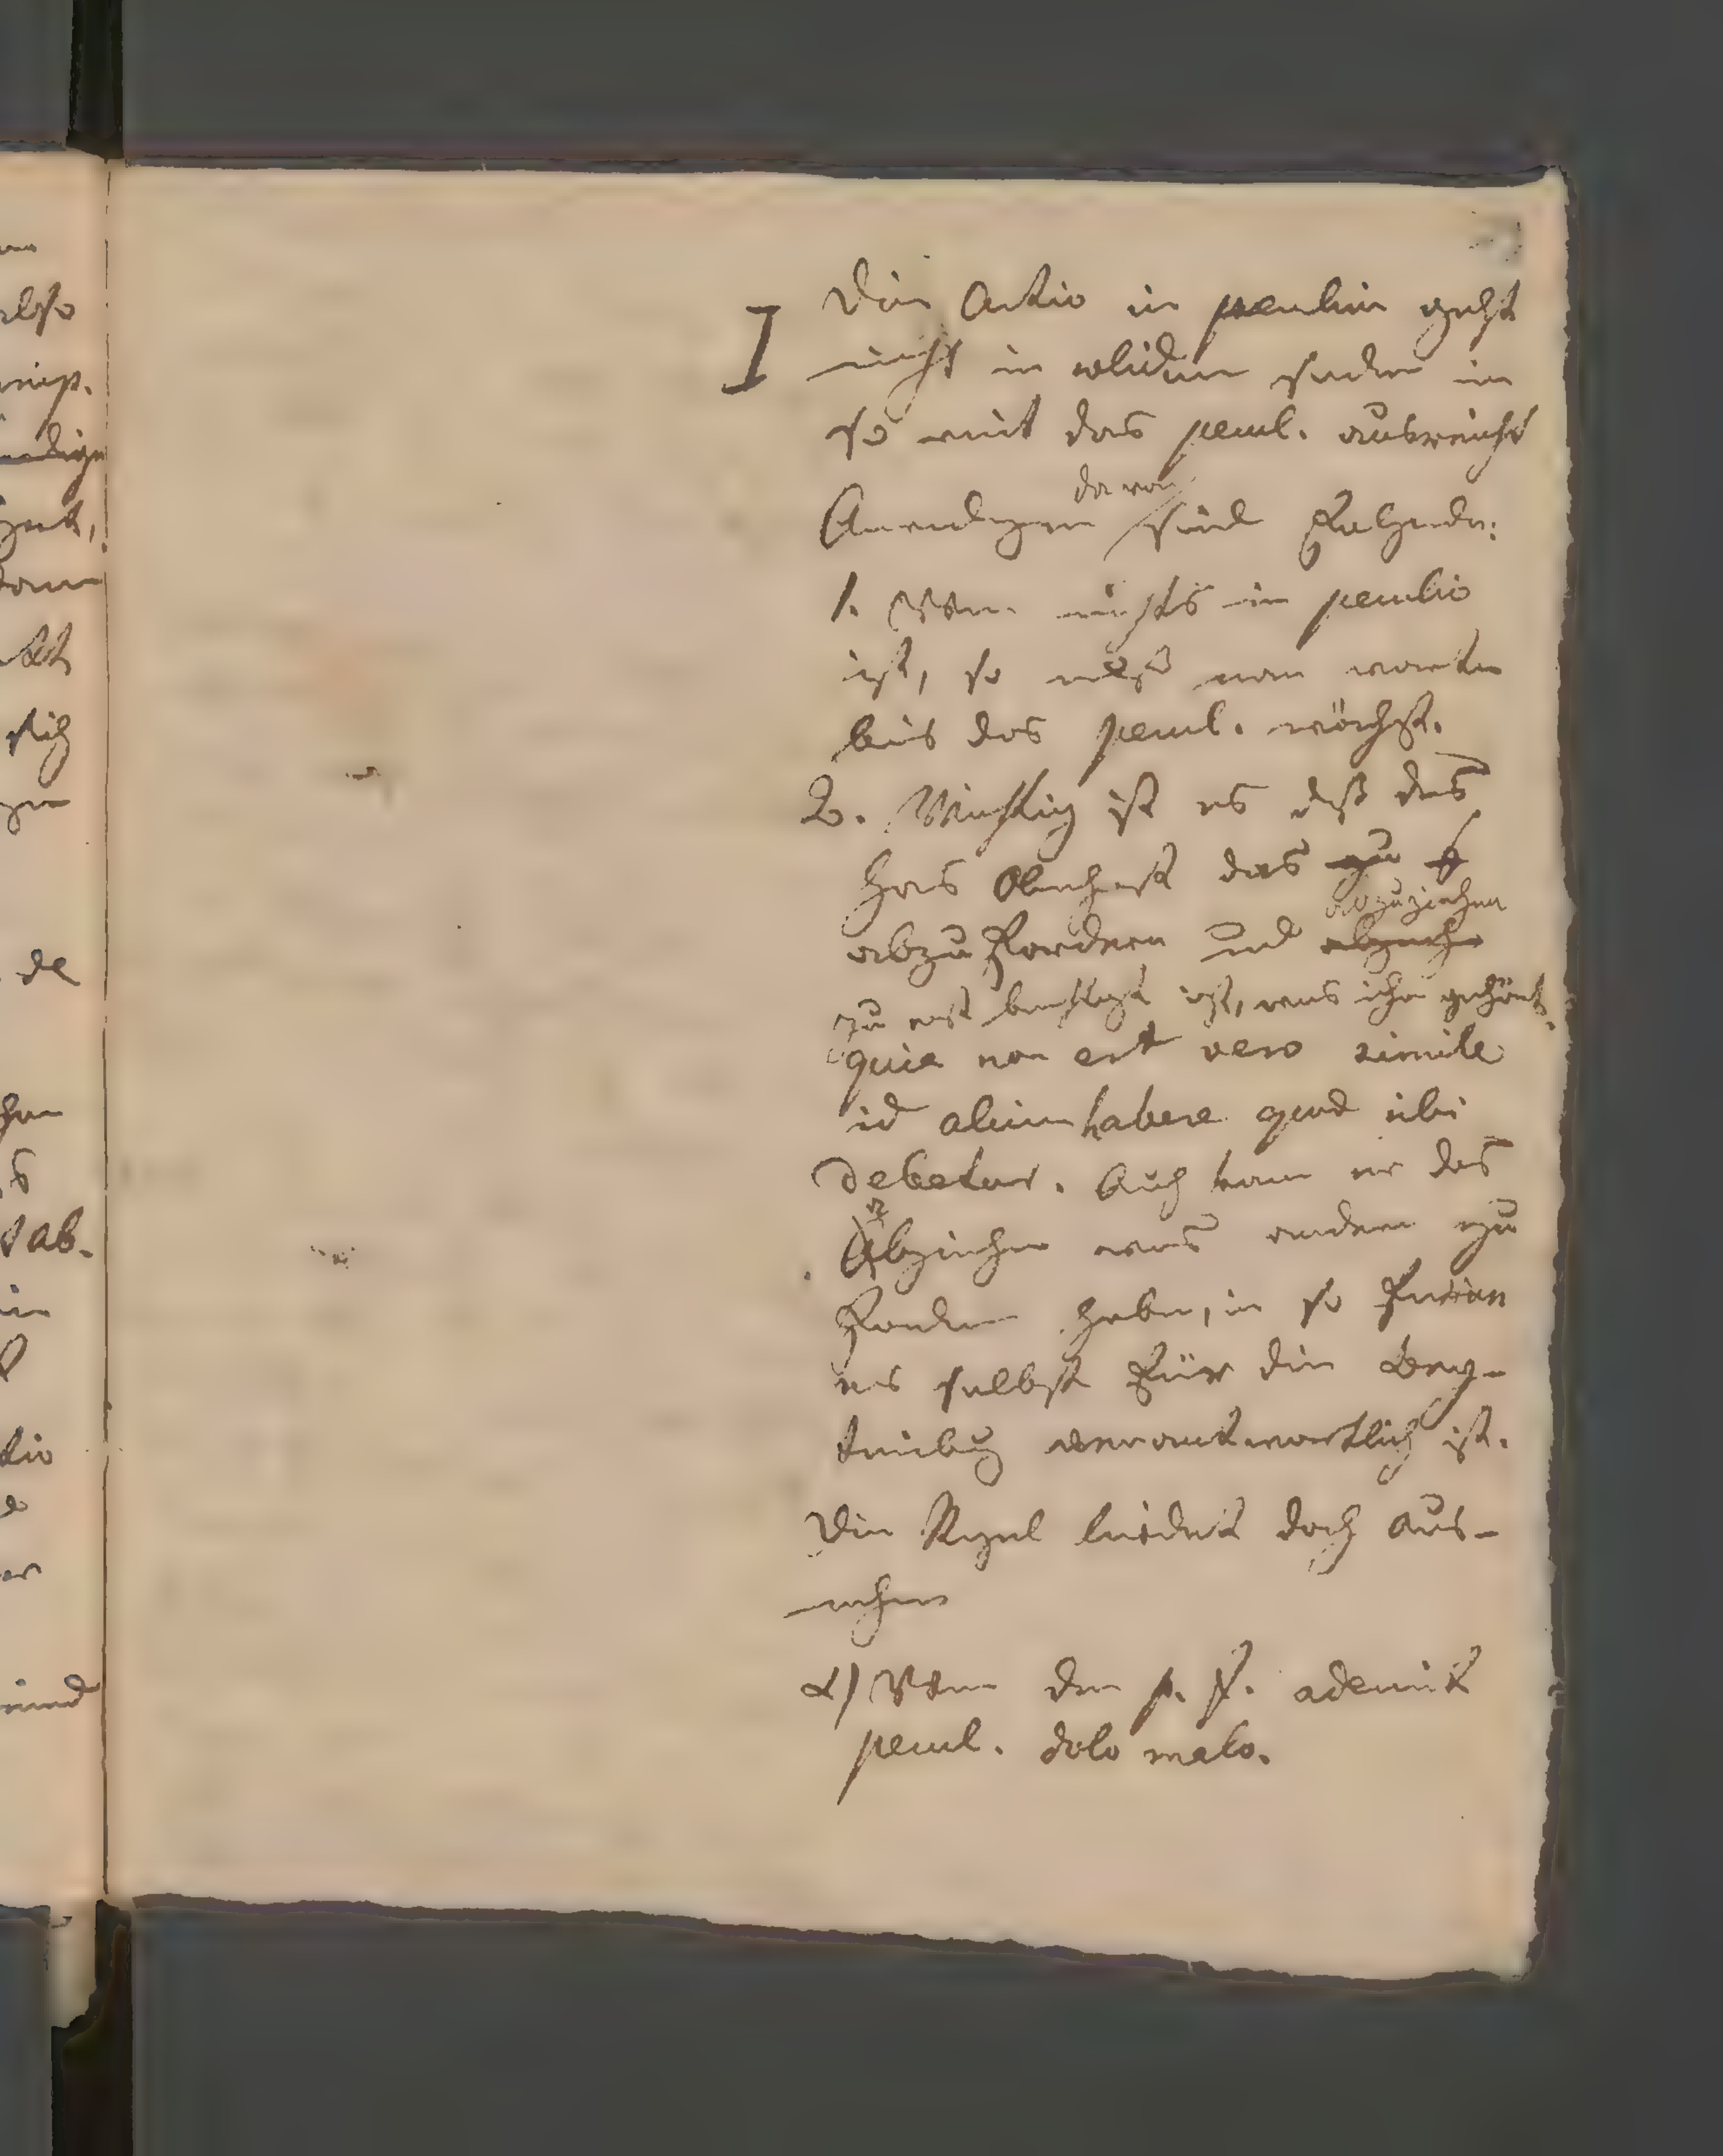 I Die Actio in peculium geht
nicht in solidum sondern in
so weit das pecul. ausreicht
davon
Anwendungen sind Folgende:
1. Wenn nichts in peculio
ist, so muß man warten
bis das pecul. wächst.
2. Wichtig ist es daß das
das zu
abzuziehen
abzufordern und abzuzieh
zu erst berechtigt ist, was ihm gehört.
quia non est vero simile
id alium habere quod sibi
debetur. Auch kann er das
Abziehen was andere zu
Fordern haben, in so Fern
er selbst Für die Bey-
treibung verantwortlich ist.
Die Regel leidet doch Aus-
nahmen
α) Wenn der p. f. ademit
pecul. dolo malo.
also
ab.
de
tio